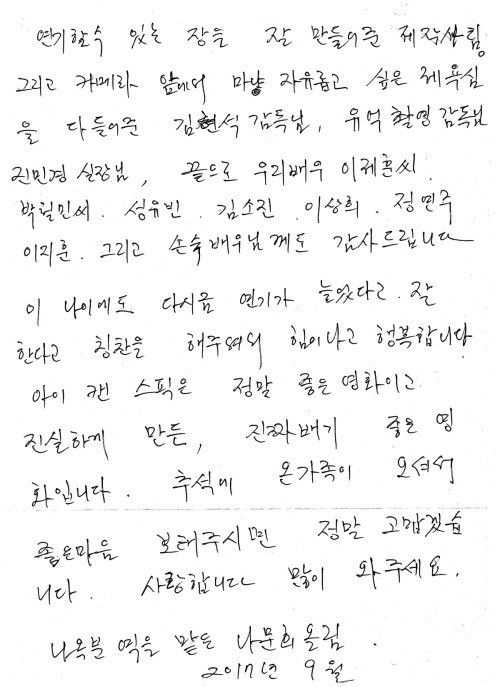 연기할수 있는 장을 잘 만들어준 제작사림,
그리고 카메라 앞에서 마냥 자유롭고 싶은 제욕심
을 다들어준 김현석 감독님, 유억 촬영감독님
진민경 실장님, 끝으로 우리배우 이제훈씨.
박철민씨. 성유빈. 김소진. 이상희. 정연주
이지훈. 그리고 손숙배우님께도 감사드립니다
이 나이에도 다시금 연기가 늘었다고. 잘
한다고 칭찬을 해주셔서 힘이나고 행복합니다
아이 캔 스픽은 정말 좋은영화이고
진실하게 만든, 진짜배기 좋은 영
화입니다. 추석에 온가족이 오셔서
좋은마음 보태주시면 정말 고맙겠습
니다. 사랑합니다 많이 와주세요.
나옥분 역을 맡은 나문희올림.
2017년 9월